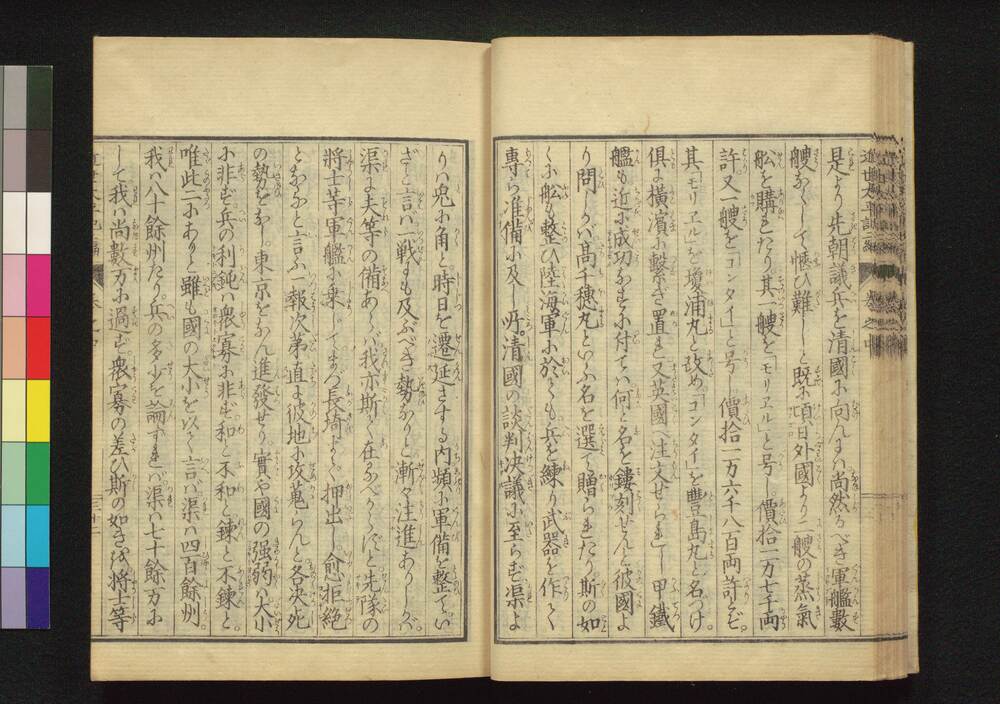 近世太平記二編 巻之四
是より先朝議兵を清國に向んには尚然るべき軍艦數
艘なくして愜ひ難しと既に頃日外國より二艘の蒸氣
舩を購れたり其一艘を「モリヱル」と号し價拾一万七千両
許又一艘を「コンタイ」と号し價拾一万六千八百両許とぞ
其「モリヱル」を瓊浦丸と改め「コンタイ」を豐島丸と名つけ
倶に横濱に繋ぎ置れ又英國へ注文せられし甲鐵
艦も近に成功なすに付ては何と名を鏤刻せんと彼國よ
り問しかば高千穂丸といふ名を選て贈られたり斯の如
くに舩も整ひ陸海軍に於ても兵を練り武器を作て
專ら准備に及し所。清國の談判决議に至らず渠よ
りは兎に角と時日を遷延さする内頻に軍備を整てい
ざと言ば一戰にも及ぶべき勢なりと漸々注進ありしかば
渠に夫等の備あらば我亦斯て在るべからずと先隊の
將士等軍艦に乗してまづ長埼まで押出し愈拒絶
となると言ふ報次第直に彼地に攻蒐らんと各决死
の勢をなし。東京をなん進發せり。實や國の强弱は大小
に非ず。兵の利鈍は衆寡に非ず。和と不和と練と不練と。
唯此二にありと雖も國の大小を以て言ば渠は四百餘州。
我は八十餘州たり。兵の多少を論ずれば渠は七十餘万に
して我は尚數万に過ず。衆寡の差ひ斯の如きを將士等